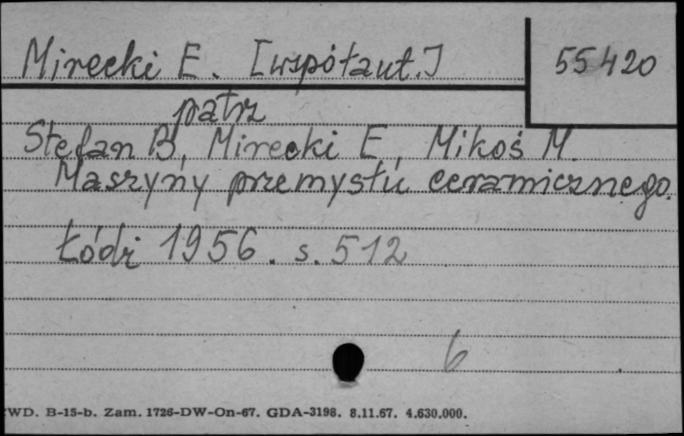 Mirecki E. [współaut.]
55420
patrz
Stefan B, Mirecki E, Mikoś M.
Maszyny przemysłu ceramicznego.
Łódź 1956. s. 512
6
WD. B-15-b. Zam. 1726-DW-On-67. GDA-3198. 8.11.67. 4.630.000.